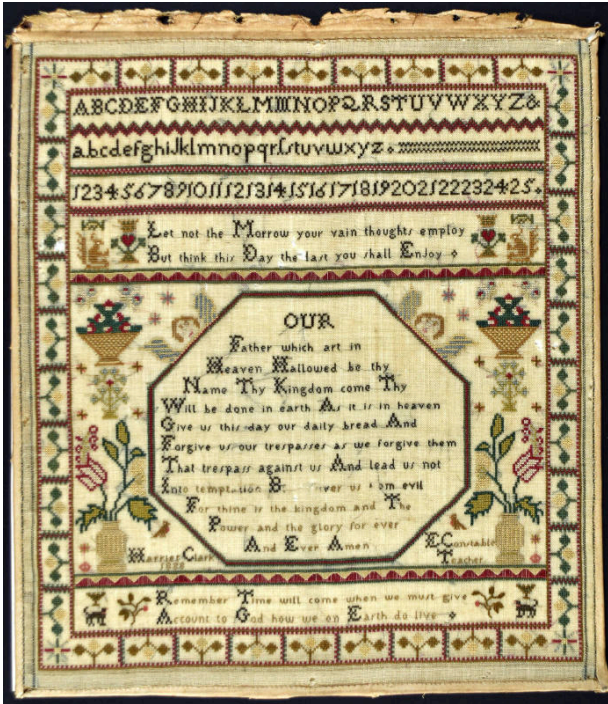 ABCDEFGHIJKLMNOPQRSTUVWXYZ&
abcdefghiJklmnopqrſstuvwxyz
1 2 3 4 5 6 7 8 9 10 11 12 13 14 15 16 17 18 19 20 21 22 23 24 25
Let not the Morrow your vain thoughts employ
But think this Day the last you shall Enjoy
OUR
Father which art in
Heaven Hallowed be thy
Name Thy Kingdom come Thy
Will be done in earth As it is in heaven
Give us this day our daily bread And
Forgive us our trespasses as we forgive them
That trespass against us And lead us not
Into temptation us evil
For thine is the kingdom and The
Power and the glory for ever
And Ever Amen
Harriet Clark
E Constable
Teacher
Remember Time will come when we must give
Account to God how we on Earth do live